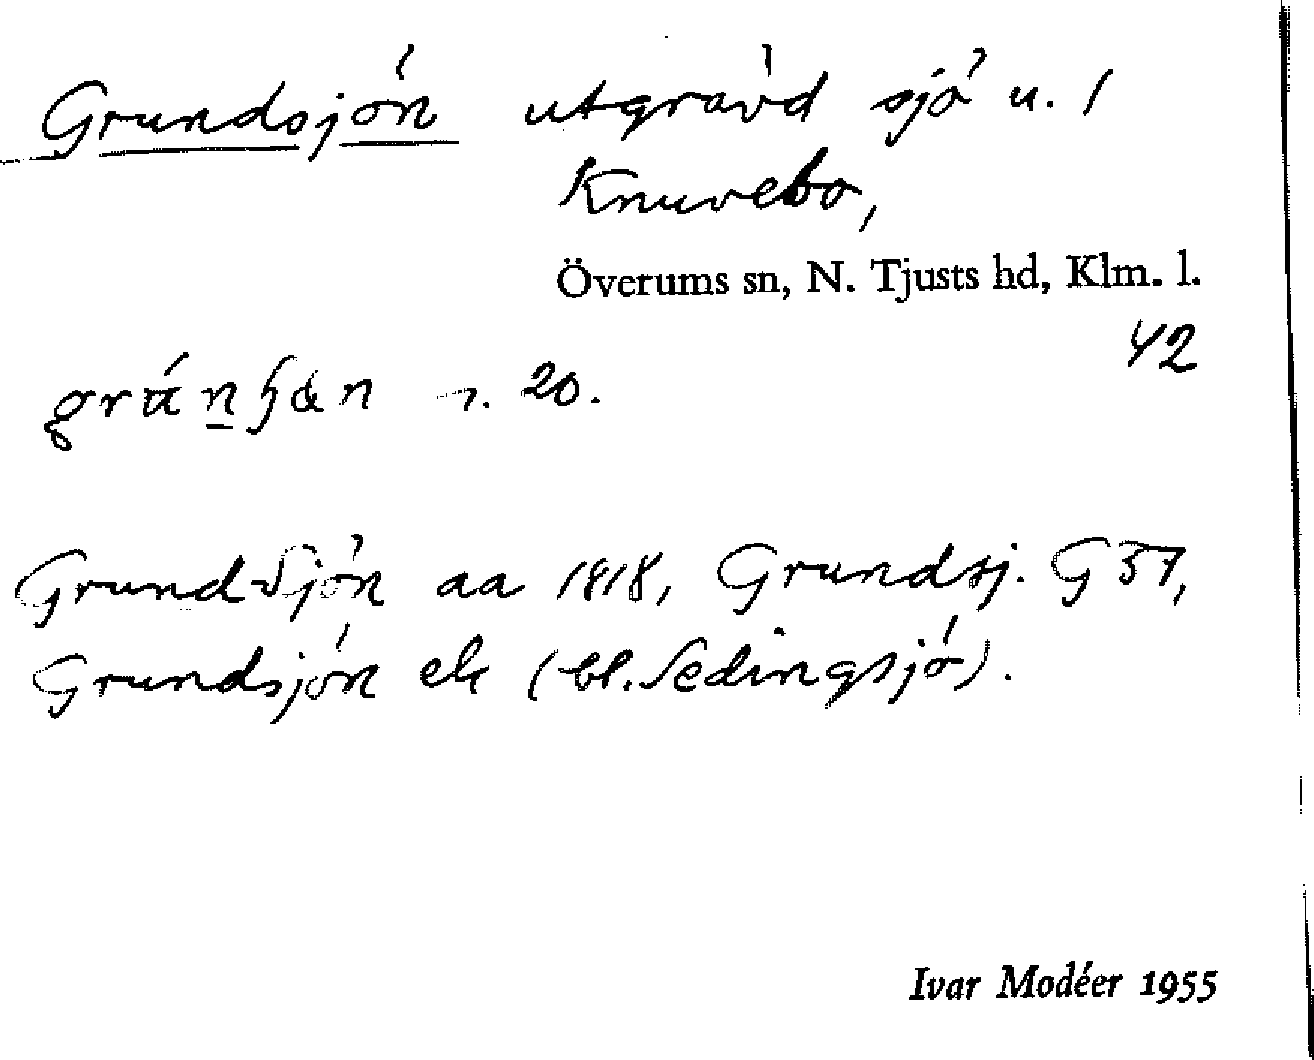 Grundsjön utgrävd sjö u. 1
Knuvebo,
Överums sn, N. Tjusts hd, Klm. l.
42
20.
Grund Sjön aa 1818, Grundsj. G 57,
Grundsjön ek (bl. Sedingsjö).
Ivar Modéer 1955